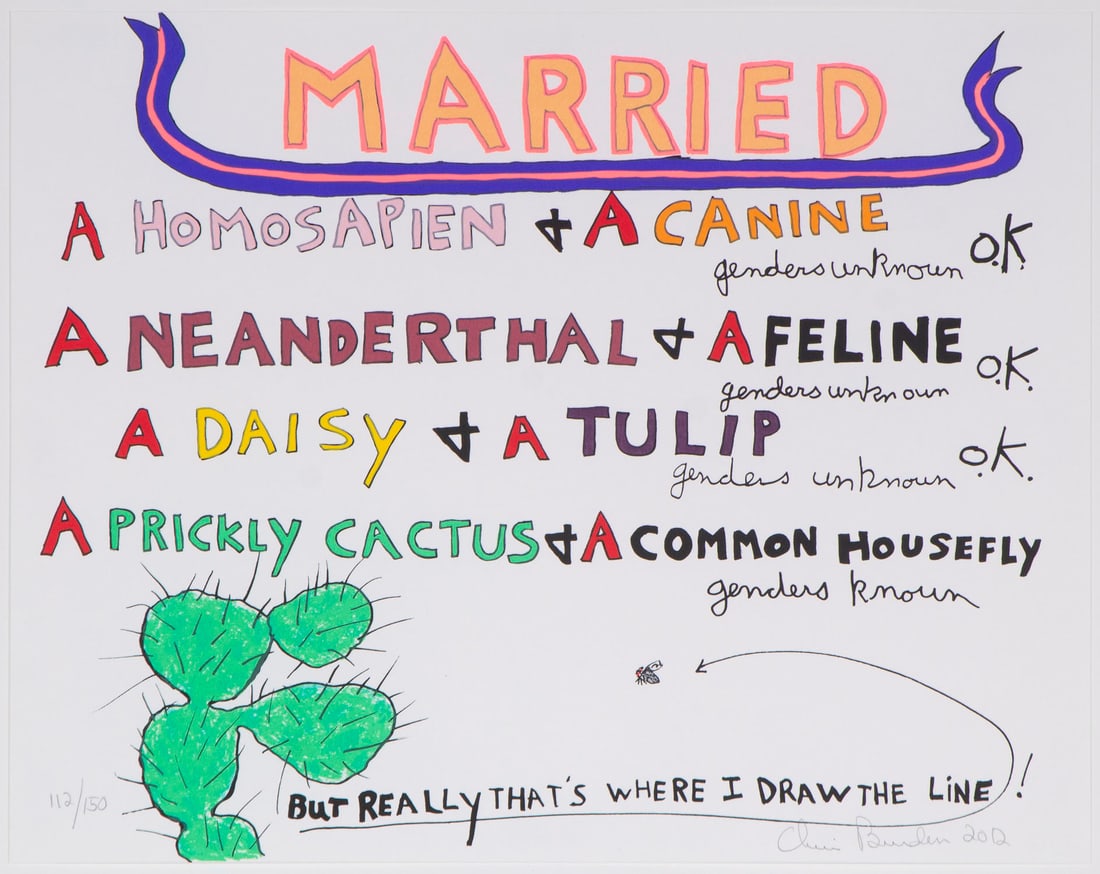 MARRIED
A HOMOSAPIEN & A CANINE
genders unknown O.K.
A NEANDERTHAL & A FELINE
genders unknown O.K.
A DAISY & A TULIP
genders unknown O.K.
A PRICKLY CACTUS & A COMMON HOUSEFLY
genders known
BUT REALLY THAT'S WHERE I DRAW THE LINE!
112/150
Chris Burden 2012